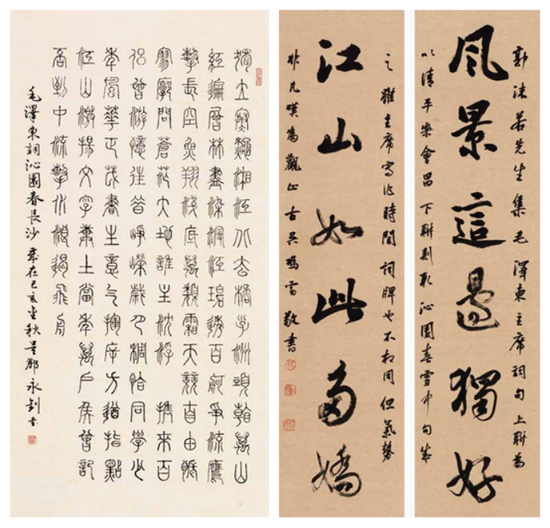 郭沫若先生集毛澤東主席詞句上聯爲
風景這邊獨好
以清平樂會昌下聯則取沁園春雪中句
之雖主席寫作時間詞牌也不相同但氣勢
江山如此多嬌
非凡嘆爲觀止古吳鳴雷敬書
獨立寒秋湘江北去橘子洲頭看萬山
紅遍層林盡染漫江碧透百舸爭流鷹
擊長空魚翔淺底萬類霜天競自由悵
寥廓問蒼茫大地誰主沈浮 攜來百
侶曾游憶往昔崢嶸歲月稠恰同學少
年風華正茂書生意氣揮斥方遒指點
江山激揚文字糞土當年萬戶侯曾記
否到中流擊水浪遏飛舟
毛澤東詞沁園春長沙 歲在己亥秋